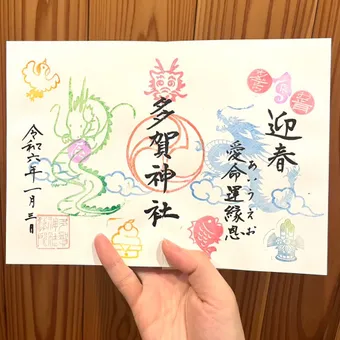 迎春
あいうえお
愛命運縁恩
多賀神社
令和六年一月三日